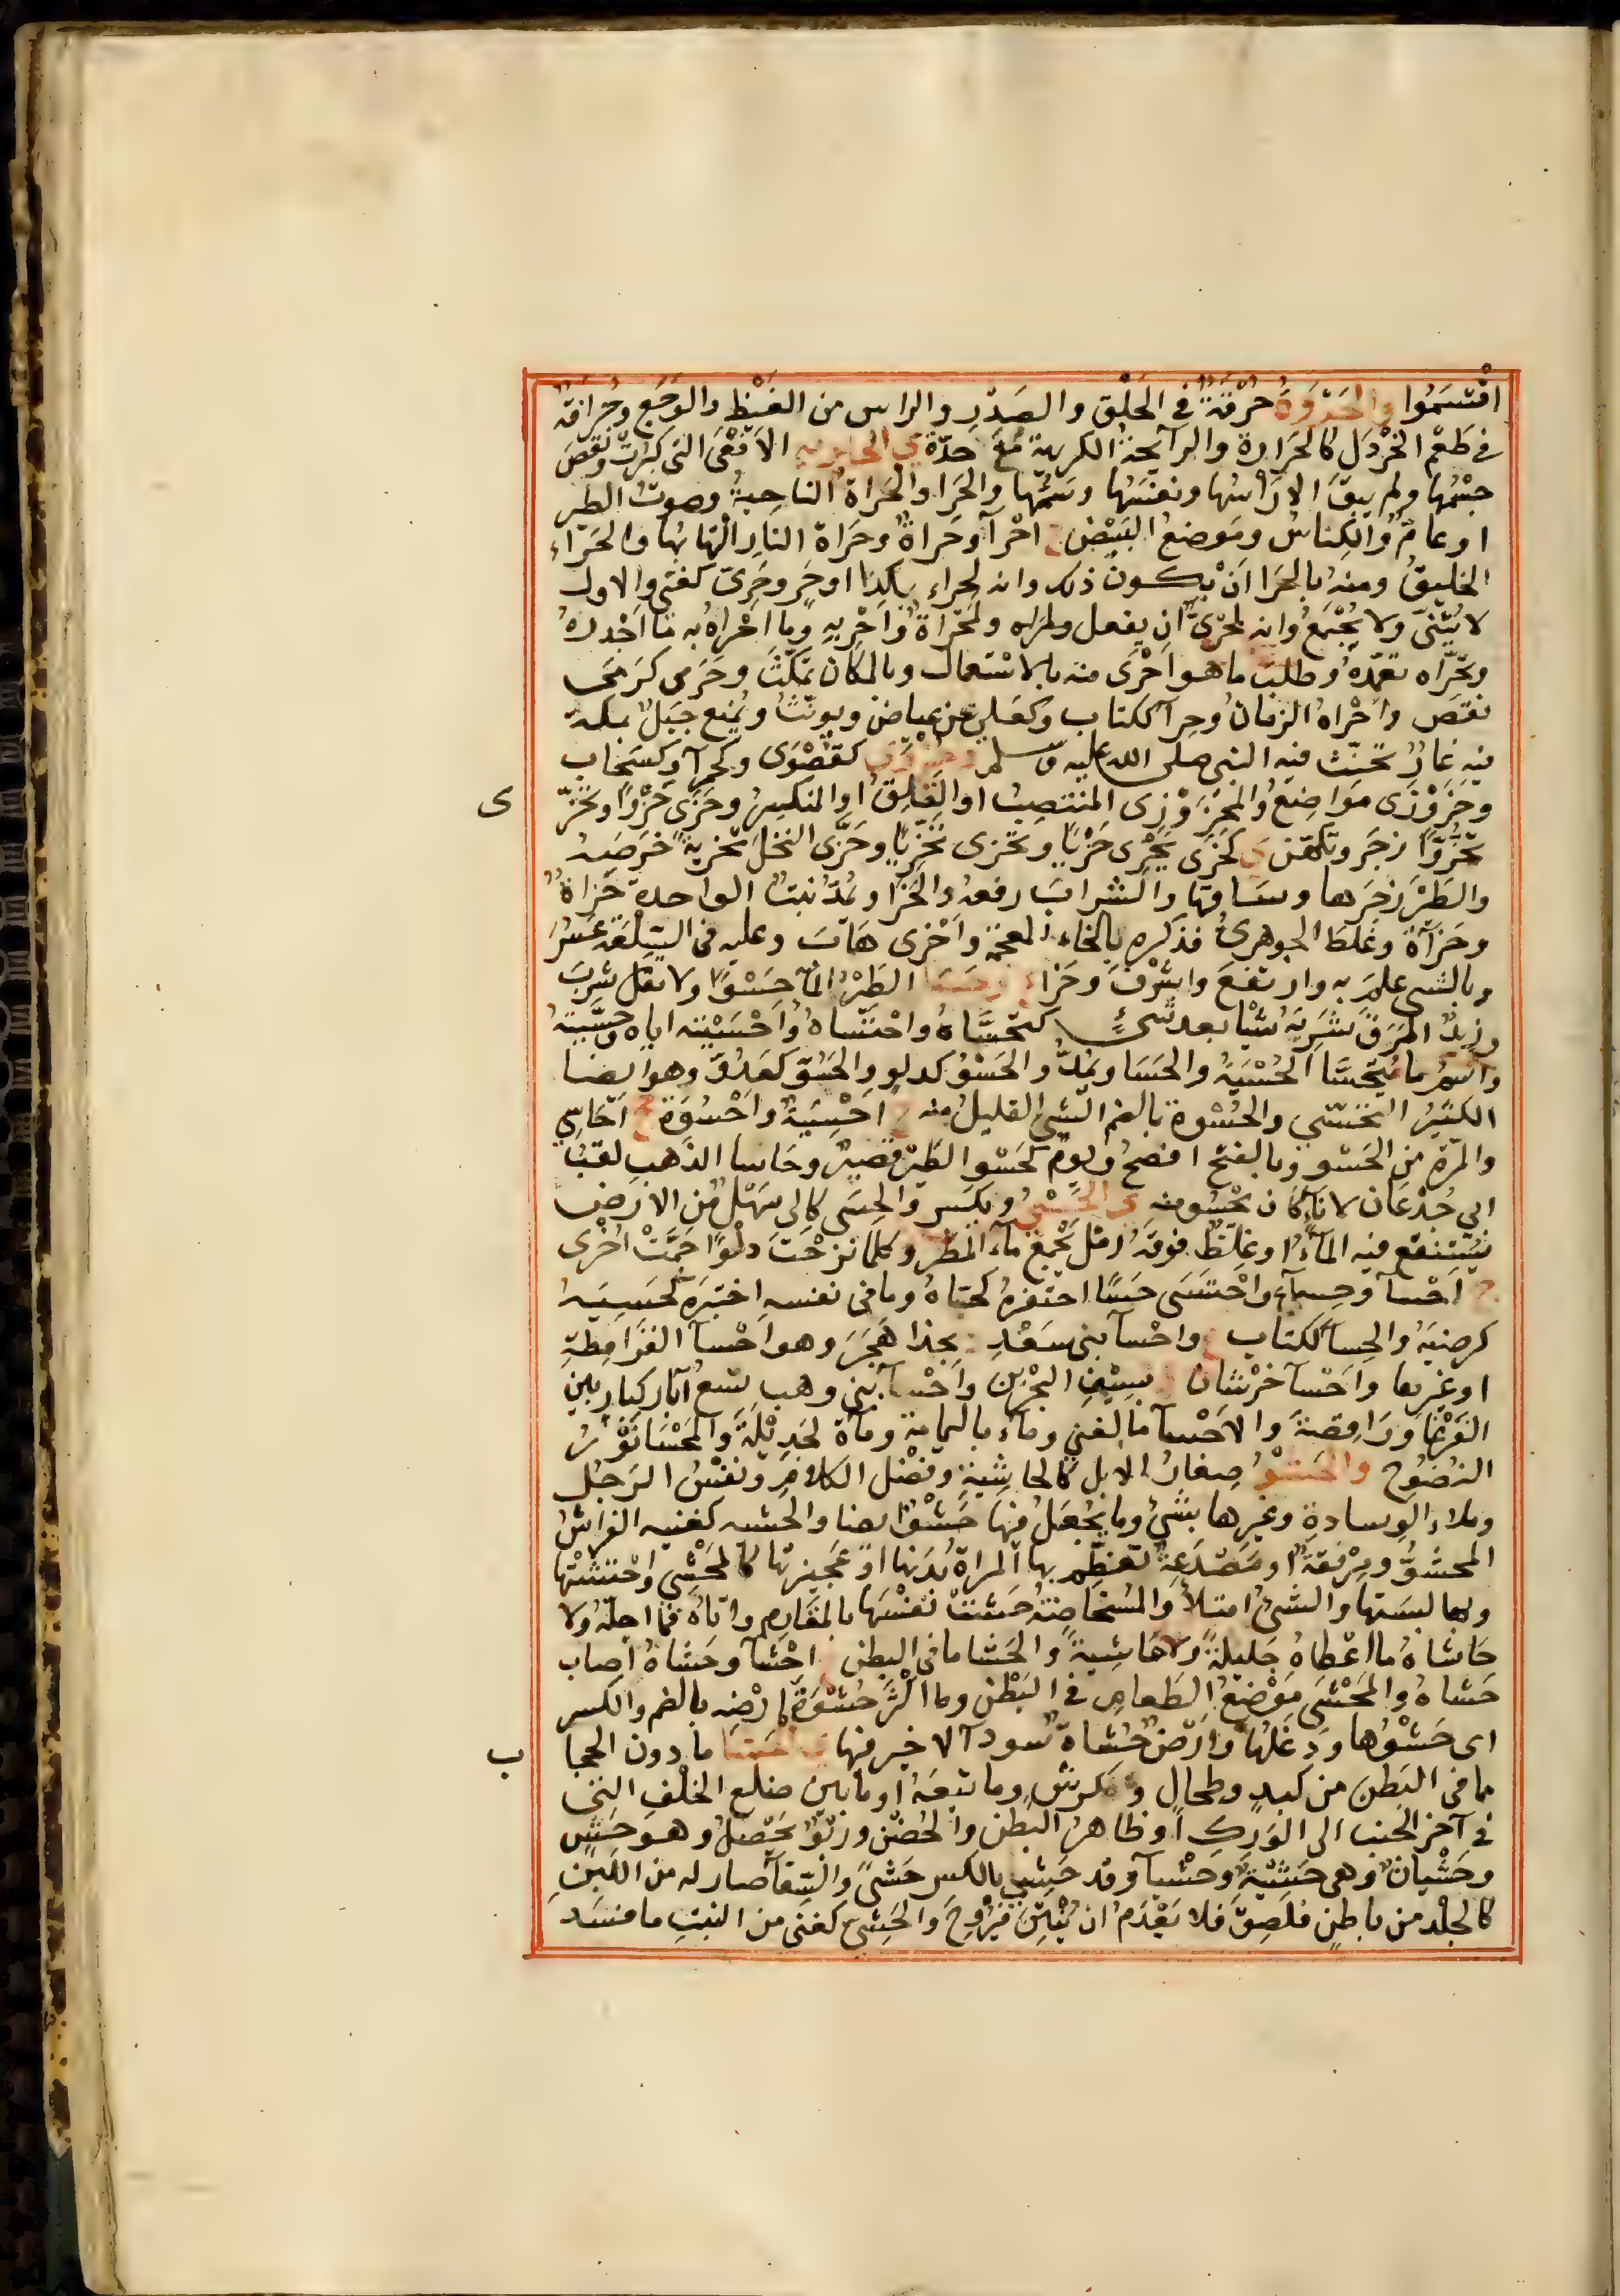 اقْتسَمُوا والحَرْوَةُ حُرْقَةٌ في الحَلْقِ والصَدْرِ والراس من الغَيْظِ والوَجَعِ وحَرَافةٌ
في طَعْمِ الخَرْدَلِ كالحَرَاوةِ والرآيحةُ الكريهةُ مَعَ حدّةٍ ي الحاريه الافْعَى التى كبُرَتْ ونقَصَ
جِسْمُها ولم يبقَ الا راْسُها ونفَسُها وسَمُّها والحَرا والحَراةُ الناحِيةُ وصوتُ الطير
او عامٌّ والكِناسُ ومَوضعُ البَيْضِ ج احْرآ وحَراةُ وحَراةُ النارِ الْتِهابُها والحَرَاءُ
الخليقُ ومنه بالحَرا اَنْ يكون ذلك وانه لحراء بكذا او حَرٍ وحَرِىّ كغنى والاول
لا يُثَنّى ولا يُجْمَعُ وانه لحَرِىّ ان يفعل ولمَحْراةٌ واَحْرِبهِ وما احْراهُ به ما اَجْدرهُ
وتحَرّاه تعمّدهُ وطلبَ ما هو احْرَى منه بالاستعمال وبالمكان تمكّثَ وحَرَى كرَمَى
نقَصَ واَحْراهُ الزمانُ وحِرآ ككتاب وكعَلى عن عياضٍ ويونّثُ ويُمْنع جبَلٌ بمكة
فيه غارٌ تحنّث فيه النبى صلى الله عليه وسلم كقَصْوَى وكجرآ وكسَحَاب
وحَزَوْزَى مواضِعُ والمُحْزَوْزِى المنتصِبُ او القَلِقُ او المنكسِرُ وحَزَى حَزْوًا وتحَزّ
ى
تَحَزُّوًا زجَر وتكهّن ي كحَزَى يحْزِى حَزْيًا وتحزى تحزّيًا وحَزّى النخلَ تحْزيةً خَرصَه
والطَيْرَ زجَرَها وساقها والشرابَ رفعهُ والحَزا ويُمَدُّ نبتٌ الواحدة حَزاةٌ
وحَزآةٌ وغَلَطَ الجوهرىُّ فذكره بالخاء المعجمة واَحْزى هَابَ وعليه فى السِلْعَة عَسُرَ
وبالشى علِمَ به وارتفعَ واشْرفَ وحَزاءٌ وحسا الطَيْرُ المآ حَسْوًا ولا تقل شرِبَ
وزيدٌ المَرَقَ شرِبَهُ شيًا بعد شىءٍ كتحَسّاهُ واحْتَساهُ واَحْسَيْته اياه وحَسَّيتهُ
واسْمُ ما يُتَحَسَّا الحُسْيَةُ والحَسَا ويُمَدُّ والحَسْوُ كدلو والحَسُوّ كعَدُوّ وهو ايضا
الكثيرُ التحَسّى والحُسْوة بالضم الشئ القليلُ منه ج اَحْسِيَةٌ واَحْسُوَةٌ جج اَحَاسِى
والمرّة من الحَسْوِ وبالفتح افصحُ ويومٌ كحَسْوِ الطَيْر قصيرٌ وحَاسا الذَهبِ لقبُ
ابى جُدْعَان لانه كان يحْسُو منه ى الحَسْىُ ويكسَر والحِسَى كالى سَهْلٌ من الارض
يَسْتنقع فيه الماءُ او غِلَظٌ فوقه رمْلٌ يَجْمعُ مآ المطر وكلما نزحْتَ دلْوًا جَمَّتْ اُخْرى
ج اَحْسآ وحِسآء واحْتَسَى حَسًا احتفره كحَسّاهُ وما فى نفسه اختبَرَه كحَسِيَه
كرضيَهُ والحِسآ ككتاب ع واحْسآ بنى سَعْدِ د بحذا هَجَرَ وهو احْسآ القَرَامِطةِ
او غيرها واَحْسآ خِرْشاف د بسِيْفِ البحْرَيْن واَحْسآ بنى وهب تسْعُ آبار كبار بين
القَرْعَا ورَاقِصة والاَحْسآ ما لغنىٍ وماء باليمامة ومآة لجَدِيْلَةَ والمَحْسَا ثوْبٌ
النضوح والحَشْوُ صِغارُ الابل كالحاشِيةِ وفضْل الكلامِ ونفْسُ الرجُل
وملاء الوسادة وغيرها بشئ وما يُجْعَلُ فيها حَشْوٌ ايضا والحشيه كغنيه الفراشُ
المحشوُّ ومِرْفقَةٌ او مَصْدَعَةٌ تعظّم بها المراةُ بدَنها او عجيزتها كالمحْشِى واحْتشَتْها
وبها لبستها والشئُ امتلأ والمُستحاضةُ حَشتْ نفْسَها بالمفارم واتاهُ فما اجلّهُ ولا
حَاشاهُ ما اعْطاهُ جَليلةً ولا حَاشيةً والحَشا ما فى البطن ج احْشآ وحَشاهُ اصاب
حَشاهُ والمَحْشَى مَوْضعُ الطَعامِ في البَطْنِ وما اكْثَرَ حُشْوَةَ ارْضِه بالضم والكسر
اى حَشْوُها ودَغَلُها وارْضٌ حَشاةٌ سودآ لا خير فيها ي الحَشا ما دون الحجا
ب
مما فى البَطن من كبدٍ وطحالٍ وكرشٍ وما تبعَهُ او ما بين ضلع الخلْفِ التى
في آخر الجنب الى الوَرِكِ او ظاهرُ البطن والحُضْن ورَبْوٌ يَحْصلُ وهو حَشٍ
وحَشْيانُ وهى حَشِيَةٌ وحَشْيآ وقد حَشِىَ بالكسر حَشىً والسِّقآ صار له من اللَبنِ
كالجلْد من باطنٍ فلَصِقَ فلا يَعْدَمُ ان يُنْتِنَ فيُرْوِحَ والحَشِىّ كغنى من النبتِ ما فسَد